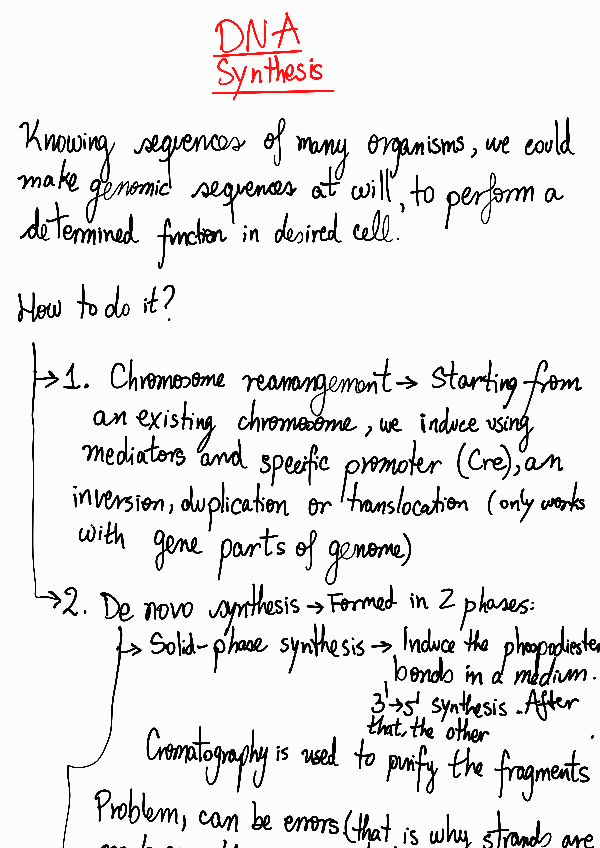 DNA
Synthesis
Knowing sequences of many organisms, we could
make genomic sequences at will, to perform a
determined function in desired cell.
How to do it?
→ 1. Chromosome rearrangement → Starting from
an existing chromosome, we induce using
mediators and specific promoter (Cre), an
inversion, duplication or translocation (only works
with gene parts of genome)
→ 2. De novo synthesis → Formed in 2 phases:
→ Solid-phase synthesis → Induce the phospodiester
bonds in a medium.
3'→5' synthesis. After
that, the other
Cromatography is used to purify the fragments
Problem, can be errors (that is why strands are